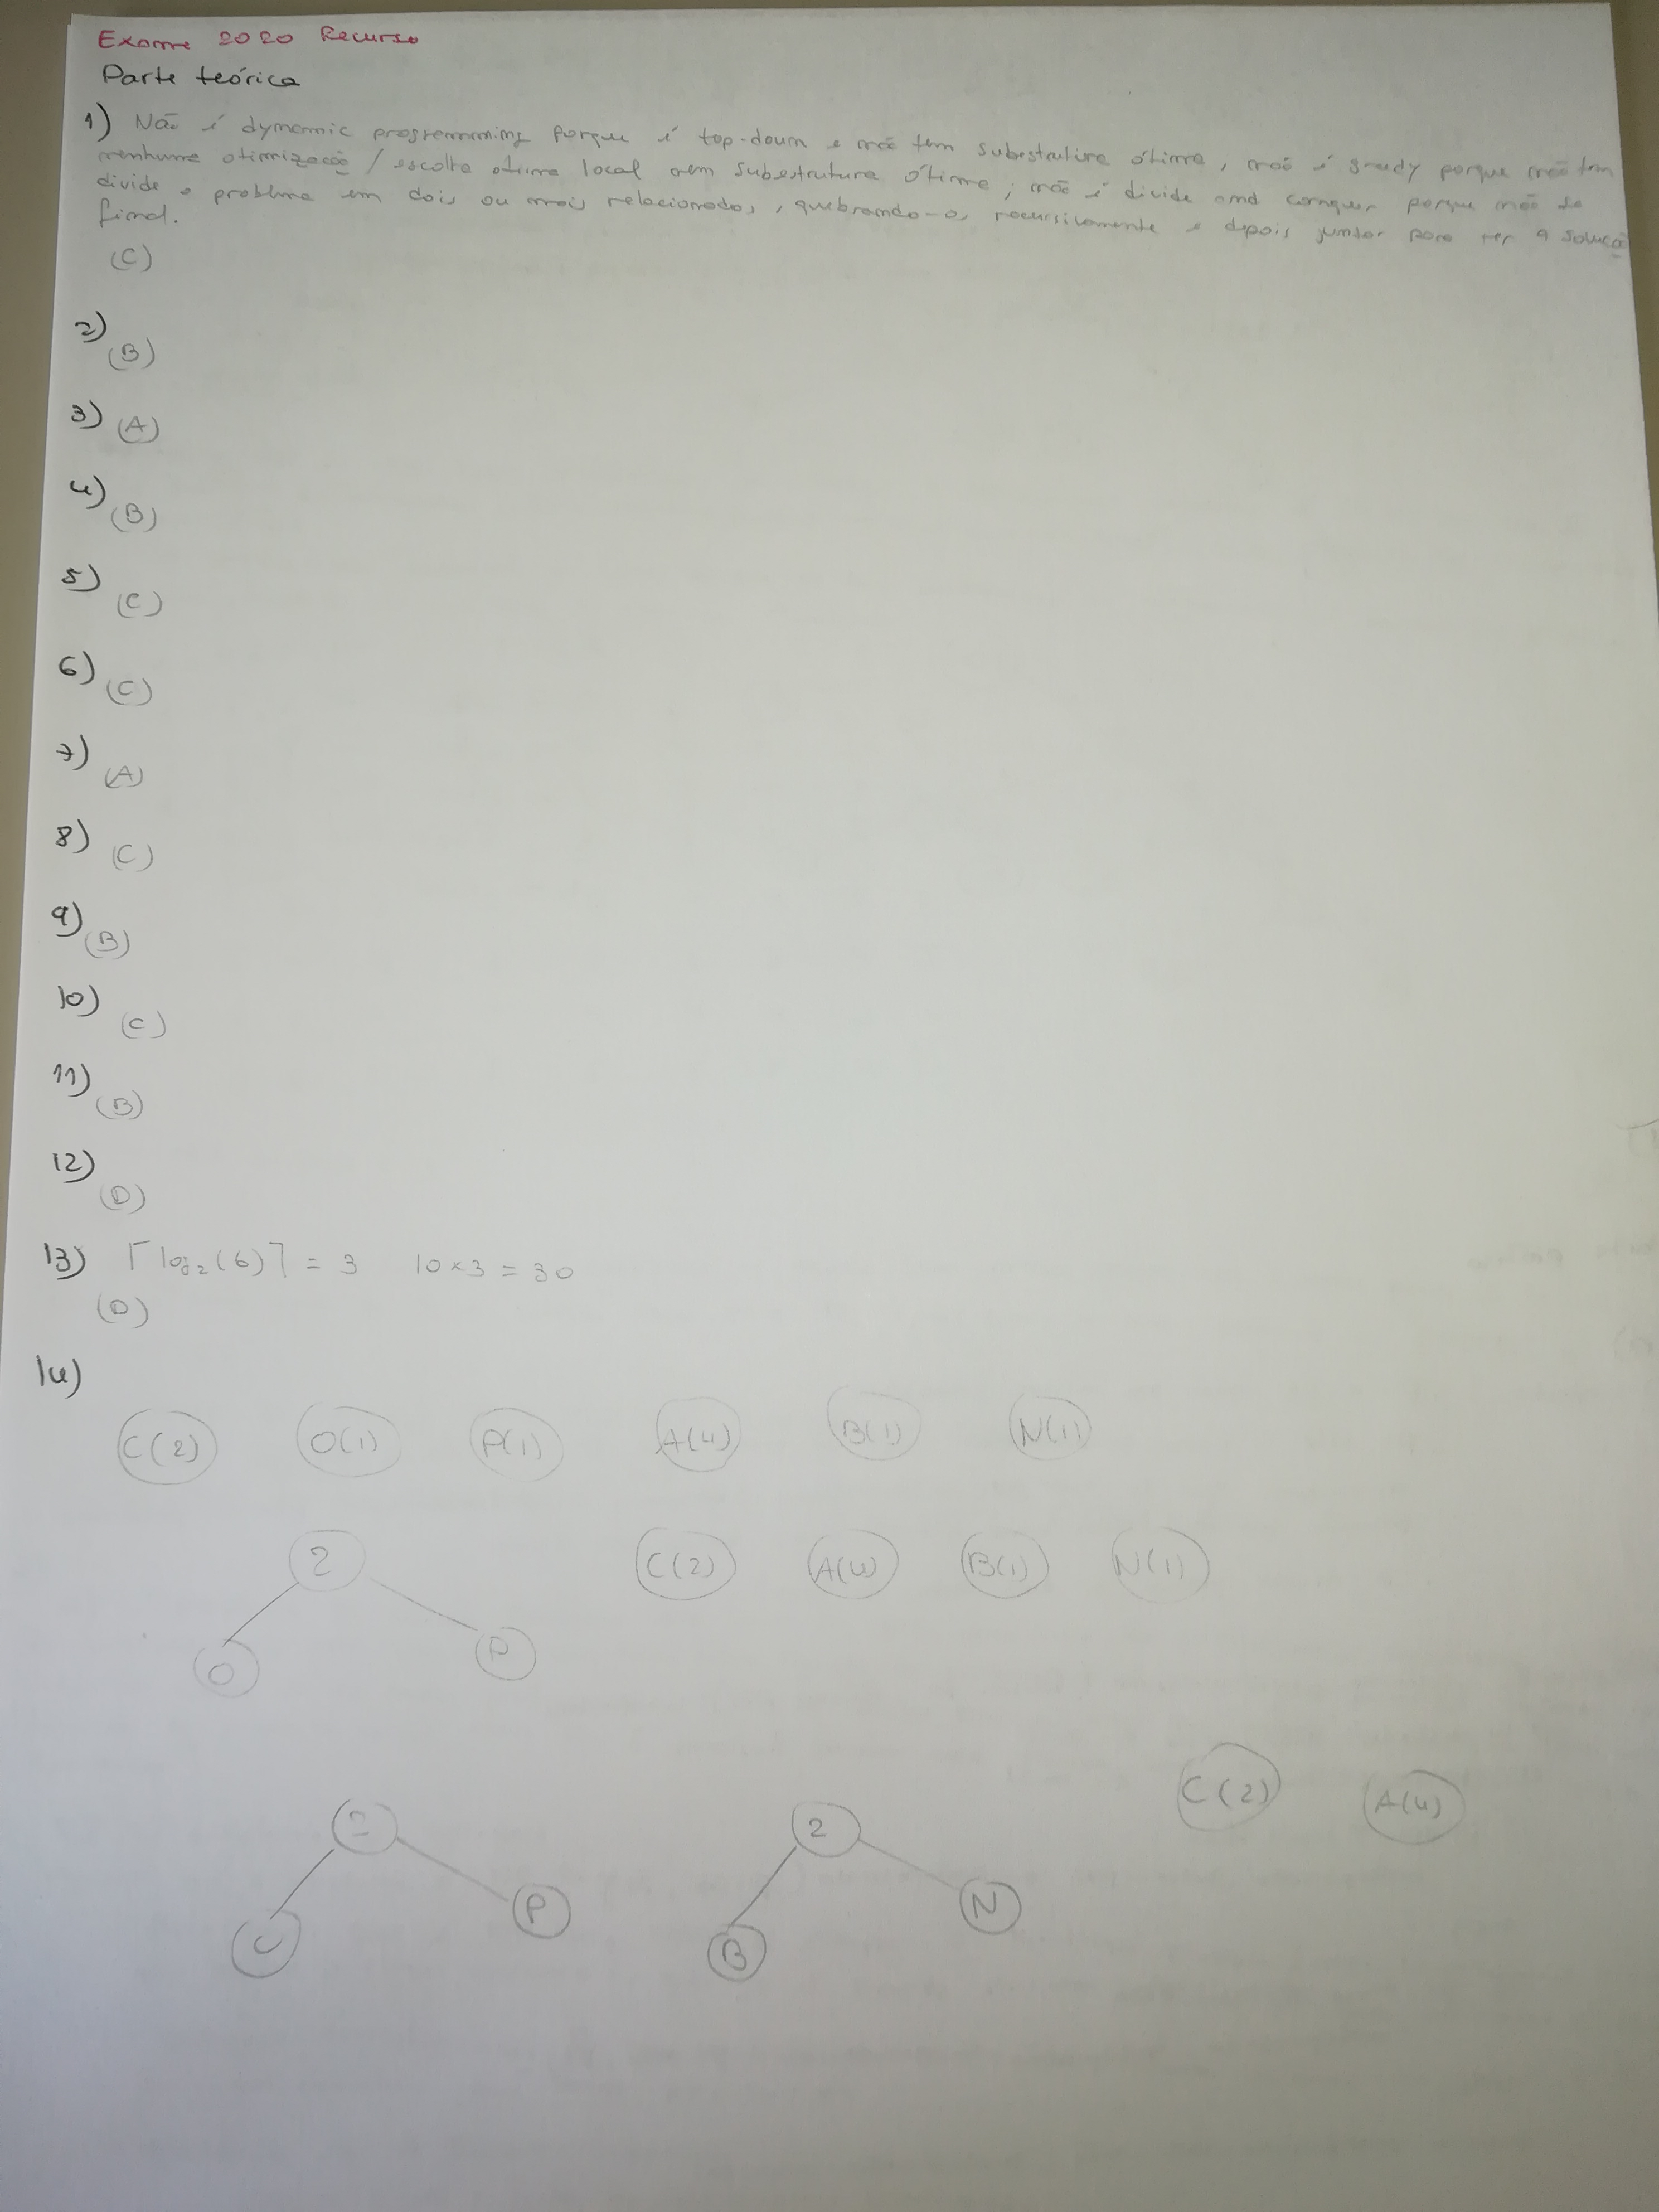 Exame 2020 Recurso
Parte teórica
1) Não é dynamic programming porque é top-down e não tem subestrutura ótima, não é greedy porque não tem
nenhuma otimização / escolha ótima local nem subestrutura ótima; não é divide and conquer porque não se
divide o problema em dois ou mais relacionados, quebrando-os recursivamente e depois juntar para ter a solução
final.
(C)
2)
(B)
3) (A)
4)
(B)
5)
(C)
6)
(C)
7)
(A)
8)
(C)
9)
(B)
10)
(C)
11)
(B)
12)
(D)
13) ⌈log₂(6)⌉ = 3 10×3 = 30
(D)
14)
C(2) O(1) P(1) A(4) B(1) N(1)
2 C(2) A(4) B(1) N(1)
O P
C(2) A(4)
2 2
P N
C B